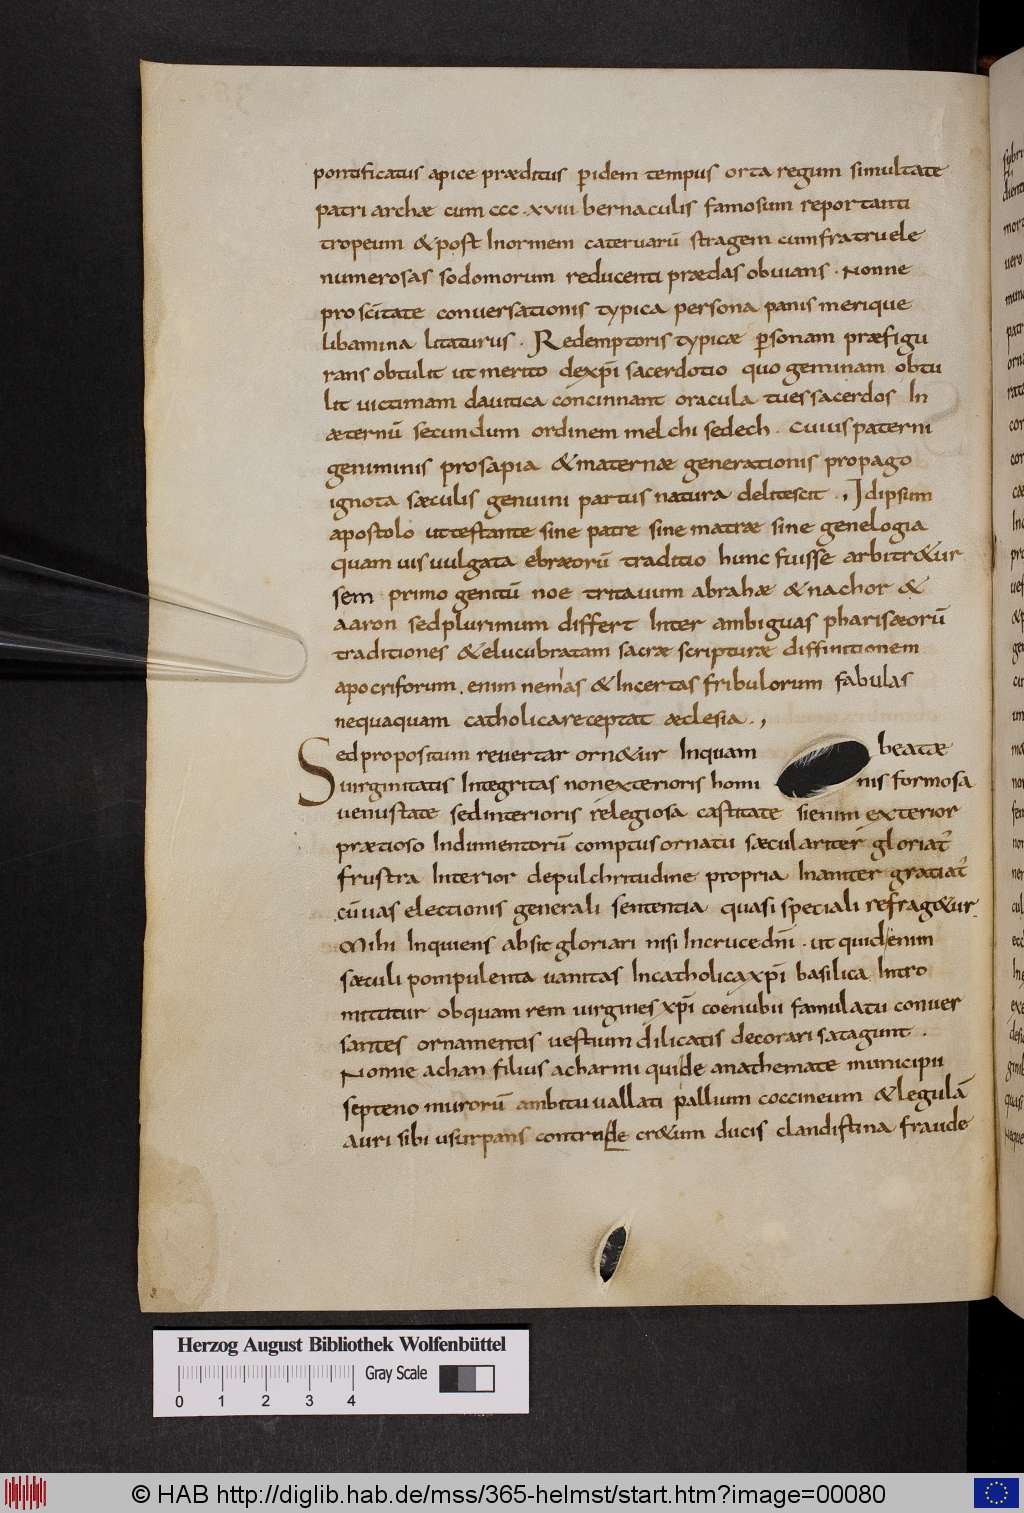 pontificatus apice præditus ꝑidem tempus orta regum simultate
patri archæ cum ccc.xviii bernaculis famosum reportanti
tropeum &post Inormem cateruarū stragem cumfratruele
numerosas sodomorum reducenti prædas obuians . Nonne
pro scitate conuersationis typica persona panis merique
libamina litaturus . Redemptoris typicæ ꝑsonam præfigu
rans obtulit ut merito dexpi sacerdotio quo geminam obtu
lit uictimam dauitica concinnant oracula tues sacerdos In
æternū secundum ordinem melchi sedech . Cuius paterni
geniminis prosapia &maternæ generationis propago
ignota sæculis genuini partus natura delitescit ., Idipsum
apostolo ut testante sine patre sine matræ sine genelogia
quam uis uulgata ebræorū traditio hunc fuisse arbitr&ur
sem primo genitū noe tritauum abrahæ &nachor &
aaron sedplurimum differt Inter ambiguas pharisæorū
traditiones &elucubratam sacræ scripturæ diffinitionem
apocriforum . enim nemias &Incertas fribulorum fabulas
nequaquam catholica receptat æclesia .,
Sed propositum reuertar orn&ur Inquam beatæ
uirginitatis Integritas nonexterioris homi nis formosa
uenustate sedinterioris relegiosa castitate sienim exterior
prætioso Indumentorū comptus ornatu sæculariter gloriat᷑
frustra Interior depulchritudine propria Inaniter gratiat᷑
cūuas electionis generali sententia quasi speciali refrag&ur.
Mihi Inquiens absit gloriari nisi Incruce dn̄i . ut quid enim
sæculi pompulenta uanitas Incatholica xp̄i basilica Intro
mittitur obquam rem uirgines xp̄i coenubii famulatu conuer
santes ornamentis uestium dilicatis decorari satagunt .
Nonne achan filius acharmi qui de anathemate municipii
septeno murorū ambitu uallati pallium coccineum &legulā
auri sibi usurpans contrui de cr&um ducis clandistina fraude
Herzog August Bibliothek Wolfenbüttel
Gray Scale
0 1 2 3 4
© HAB http://diglib.hab.de/mss/365-helmst/start.htm?image=00080